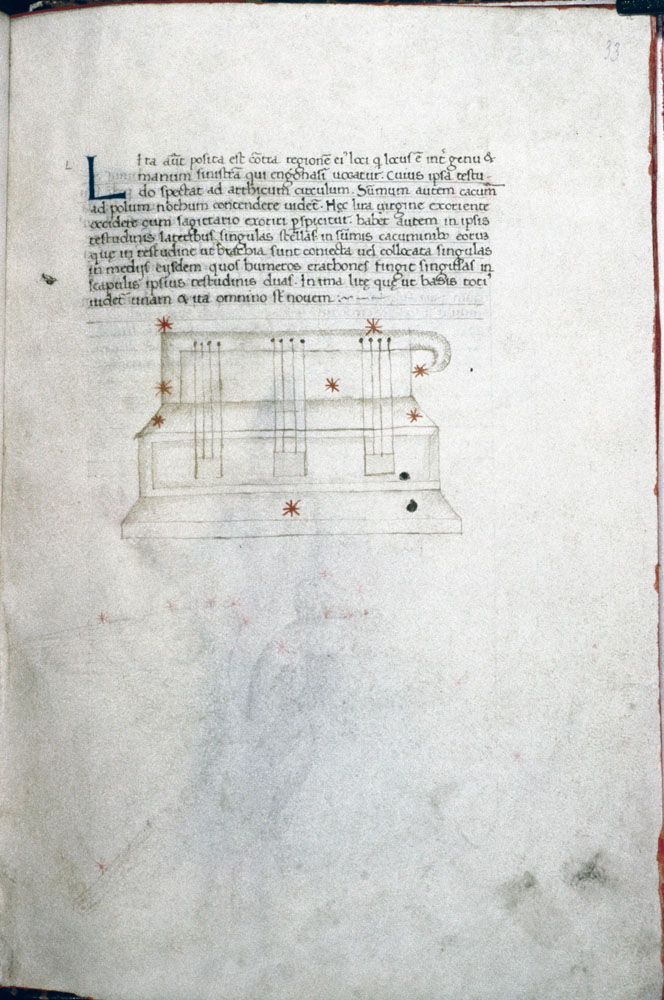 33
L
Lira aūt posita est cōtra regionē ei' loci q̄ locus ē int̄ genu &
manum sinistrā qui engonasi uocatur. Cuius ipsa testu
do spectat ad arthicum circulum. Sūmum autem cacum̄
ad polum nothum contendere uideť. Hęc lira uirgine exoriente
occidere cum sagittario exoriri pspicitur. habet autem in ipsis
testudinis lateribus singulas stellas. in sūmis cacuminibꝫ eorus
que in testudine ut brachia sunt coniecta uel collocata singulas
in medijs eisdem quos humeros erathones fingit singulas in
scapulis ipsius testudinis duas. In ima lirę que ut basis toti'
uideť unam & ita omnino sť nouem